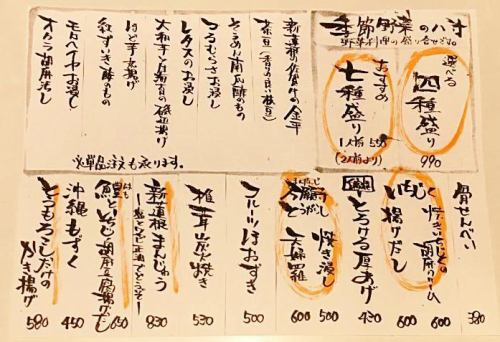 季節野菜の八寸
野菜料理の盛り合せです。
選べる
四種盛り
990
おすすめ
七種盛り
1人前 550
(2人前より)
新蓮根の佐賀牛の金平
茶豆(香りの良い枝豆)
そうめん南瓜酢のもの
つるむらさきお浸し
レタスのお浸し
大和芋と百合根の磯辺揚げ
はと芋素揚げ
紅ずいき酢のもの
モロヘイヤお浸し
オクラ胡麻浸し
※単品注文も承ります。
骨せんべい 380
焼きいちじくの胡麻クリーム 600
いちじく揚げだし 600
とろける厚あげ 430
焼き浸し 500
天婦羅 600
フルーツほおずき 500
椎茸炭焼き 530
新蓮根まんじゅう 830
鱧といちじく胡麻豆腐揚げだし 650
沖縄もずく 450
とうもろこしだけのかき揚げ 580